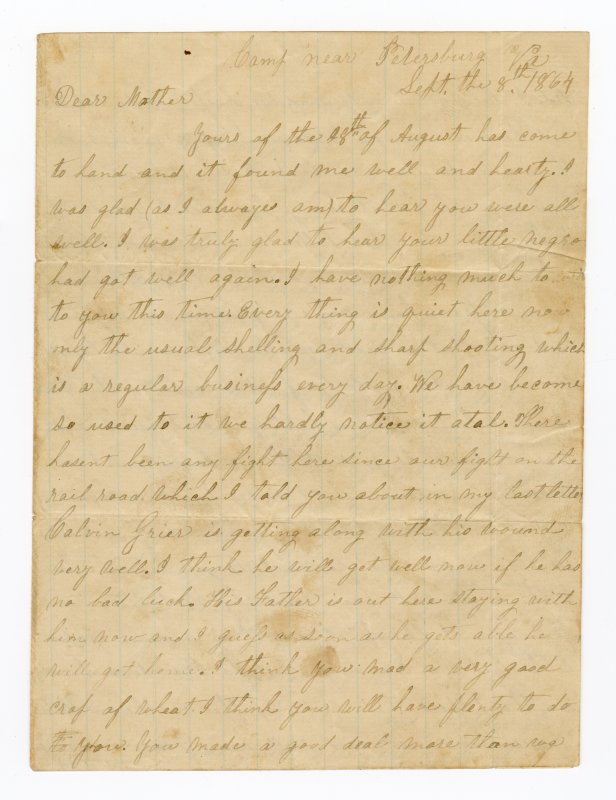 Camp near Petersburg Va
Sept. the 8.th 1864
Dear Mother
Yours of the 28th of August has come
to hand and it found me well and hearty. I
was glad (as I alwayes am) to hear you were all
well. I was truly glad to hear your little negro
had got well again. I have nothing much to
to you this time. Every thing is quiet here now
only the usual shelling and sharp shooting which
is a regular business every day. We have become
so used to it we hardly notice it atal. There
hasent been any fight here since our fight on the
rail road which I told you about in my last letter
Calvin Grier is getting along with his wound
very well. I think he will get well now if he has
no bad luck. His Father is out here staying with
him now and I guess as soon as he gets able he
will get home. I think you mad a very good
crop of wheat I think you will have plenty to do
to you. You made a good deal more than we